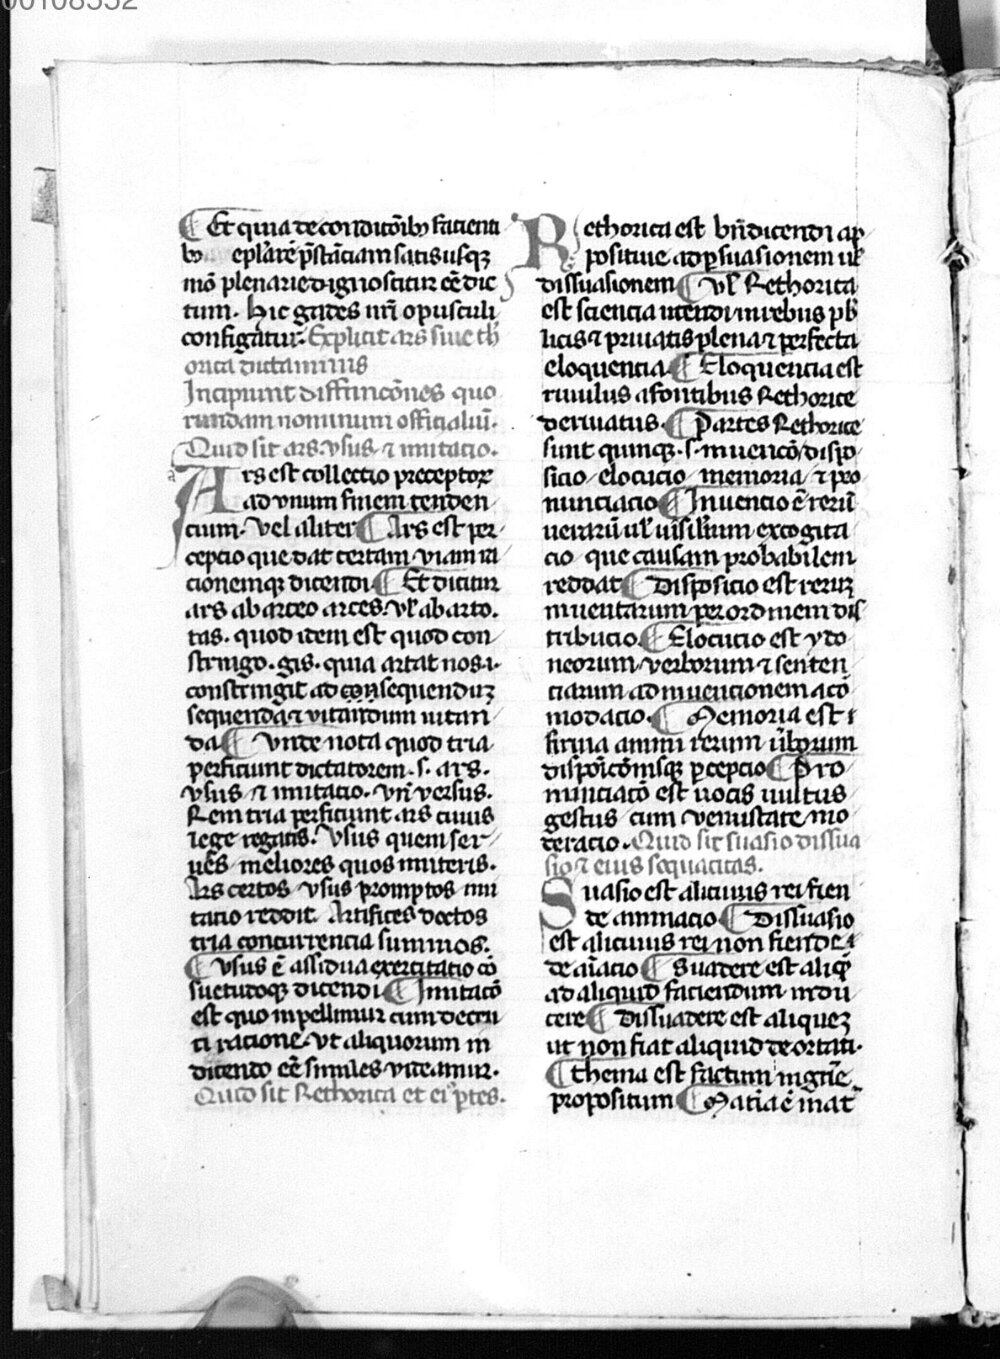 00108552
¶ Et quia de condicōibꝫ facienti
bꝫ eplārē p̄stāciam satis usqꝫ
mō plenarie dignoscitur eē dic
tum. Hic gades nr̄i opusculi
configatur. Explicit ars siue rh̓
orica dictaminis
Incipiunt diffinicōnes quo
rundam nominum officialiū.
Quid sit ars. vsus. ⁊ imitacio.
Ars est collectio preceptoꝝ
ad vnum finem tenden
cium. Vel aliter ¶ Ars est per
cepcio que dat certam viam ra
cionemqꝫ dicendi ¶ Et dicitur
ars ab arceo arces. Vl̓ ab arto.
tas. quod idem est quod con
stringo. gis. quia artat nos .i.
constringit ad consequenduꝫ
sequenda ⁊ vitandum vitan
da ¶ Vnde nota quod tria
perficiunt dictatorem. s. ars.
vsus ⁊ imitacio. Vn̄ versus.
Rem tria perficiunt ars cuius
lege regatis. Vsus quem ser
uēs meliores quos imiteris.
Ars certos vsus promptos imi
tatio reddit. Artifices doctos
tria concurrencia summos.
¶ Vsus ē assidua exercitatio cō
suetudoqꝫ dicendi ¶ Imitacō
est quo inpellimur cum decen
ti racione. vt aliquorum in
dicendo eē similes videamur.
Quid sit Rethorica et eiꝰ ptes.
Rethorica est bn̄ dicendi ap
positiue ad ꝑsuasionem ul̓
dissuasionem ¶ vl̓ Rethorica
est sciencia utendi in rebus pb̓
licis ⁊ priuatis plena ⁊ perfecta
eloquencia ¶ Eloquencia est
riuulus a fontibus Rethorice
deriuatus. ¶ Partes Rethorice
sunt quinqꝫ. s. inuencō dispo
sicio elocucio memoria ⁊ pro
nunciacio ¶ Inuencio ē rerū
uerarū ul̓ uīsilium excogita
cio que causam probabilem
reddat ¶ Disposicio est reruꝫ
inuentarum per ordinem dis
tribucio ¶ Elocucio est ydo
neorum verborum ⁊ senten
ciarum ad inuencionem acō
modacio. ¶ Memoria est ⁊
firma animi rerum ūborum
dispōicōnisqꝫ ꝑcepcio ¶ Pro
nunciacō est uocis uultus
gestus cum venustate mo
deracio. Quid sit suasio dissua
sio ⁊ eius sequacitas.
Suasio est alicuius rei fien
de animacio ¶ Dissuasio
est alicuius rei non fiende ⁊
de aīacio ¶ Suadere est aliqꝫ
ad aliquid faciendum indu
cere ¶ Dissuadere est aliqueꝫ
ut non fiat aliquid deortari.
¶ Thema est factum in gn̄e
propositum ¶ Mat̄ia ē inat